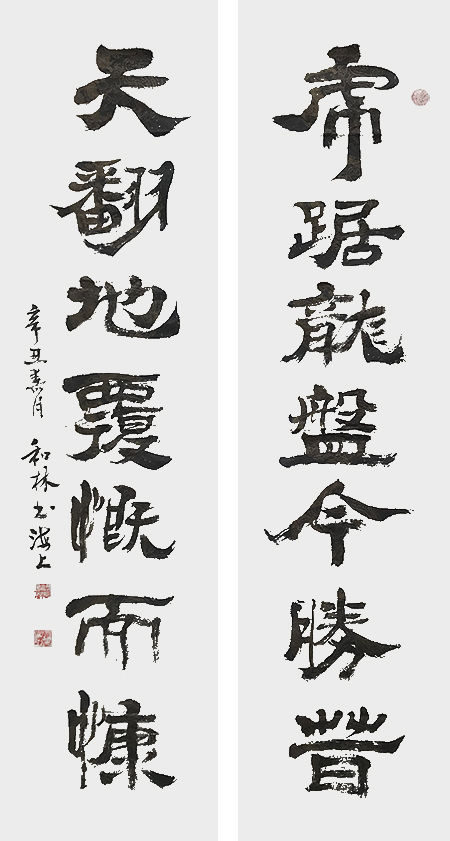 虎踞龍盤今勝昔
天翻地覆慨而慷
辛丑
和林書海上